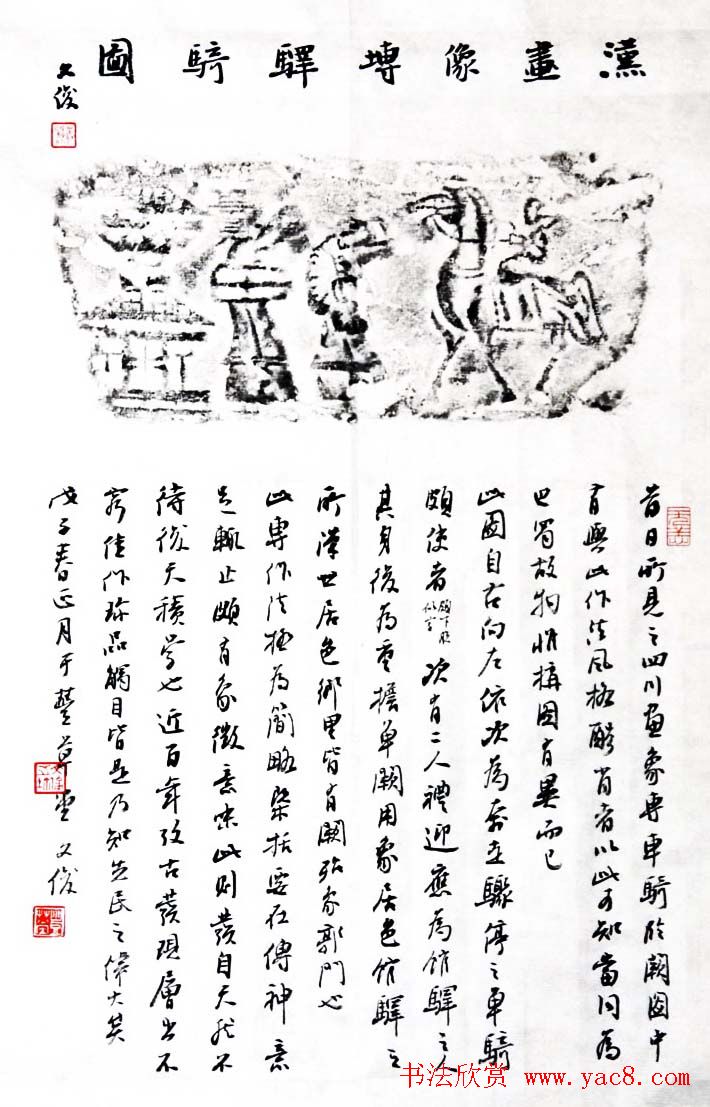 漢畫像塼驛騎圖
文俊
昔日所見之四川畫象專車騎臨闕圖中
有與此作法風格酷肖者以此可知當同為
巴蜀故物惟構圖有異而已
此圖自右向左依次為奔至驟停之單騎
頗使者次有二人禮迎應為館驛之人
其身後為重檐單闕用象居邑館驛之
所漢世居邑鄉里皆有闕張象郭門也
此專作法極為簡略檃括要在傳神意
足輒止頗有象徵意味此則發自天然不
待後天積學也近百年攷古發現層出不
窮佳作珍品觸目皆是乃知先民之偉大其
戊子春正月于 草堂 文俊
书法欣赏 www.yac8.com